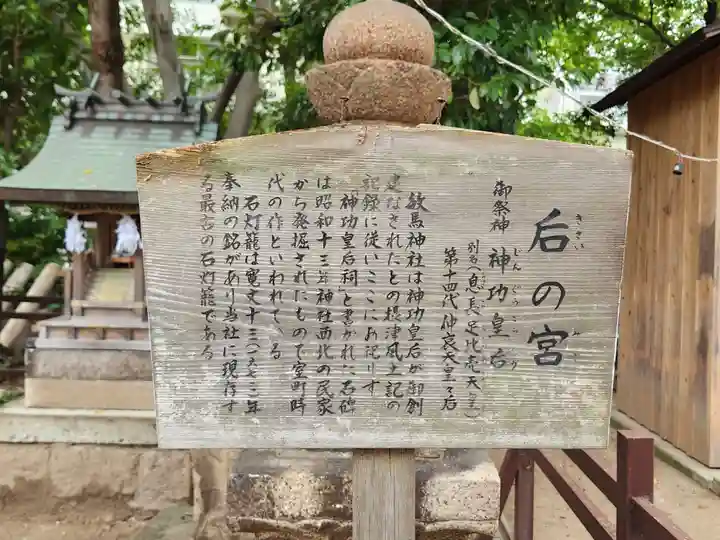 后の宮
きさい
みや
御祭神 神功皇后
じんぐうこうごう
別名(息長足比売天皇)
第十四代仲哀天皇々后
敏馬神社は神功皇后が御創
建なされたとの摂津風土記の
記録に従いここにお祀りす
「神功皇后祠」と書かれた石碑
は昭和十三年神社西北の民家
から発掘されたもので室町時
代の作といわれている
石灯籠は寛文十三(一六七三)年
奉納の銘があり当社に現存す
る最古の石灯籠である